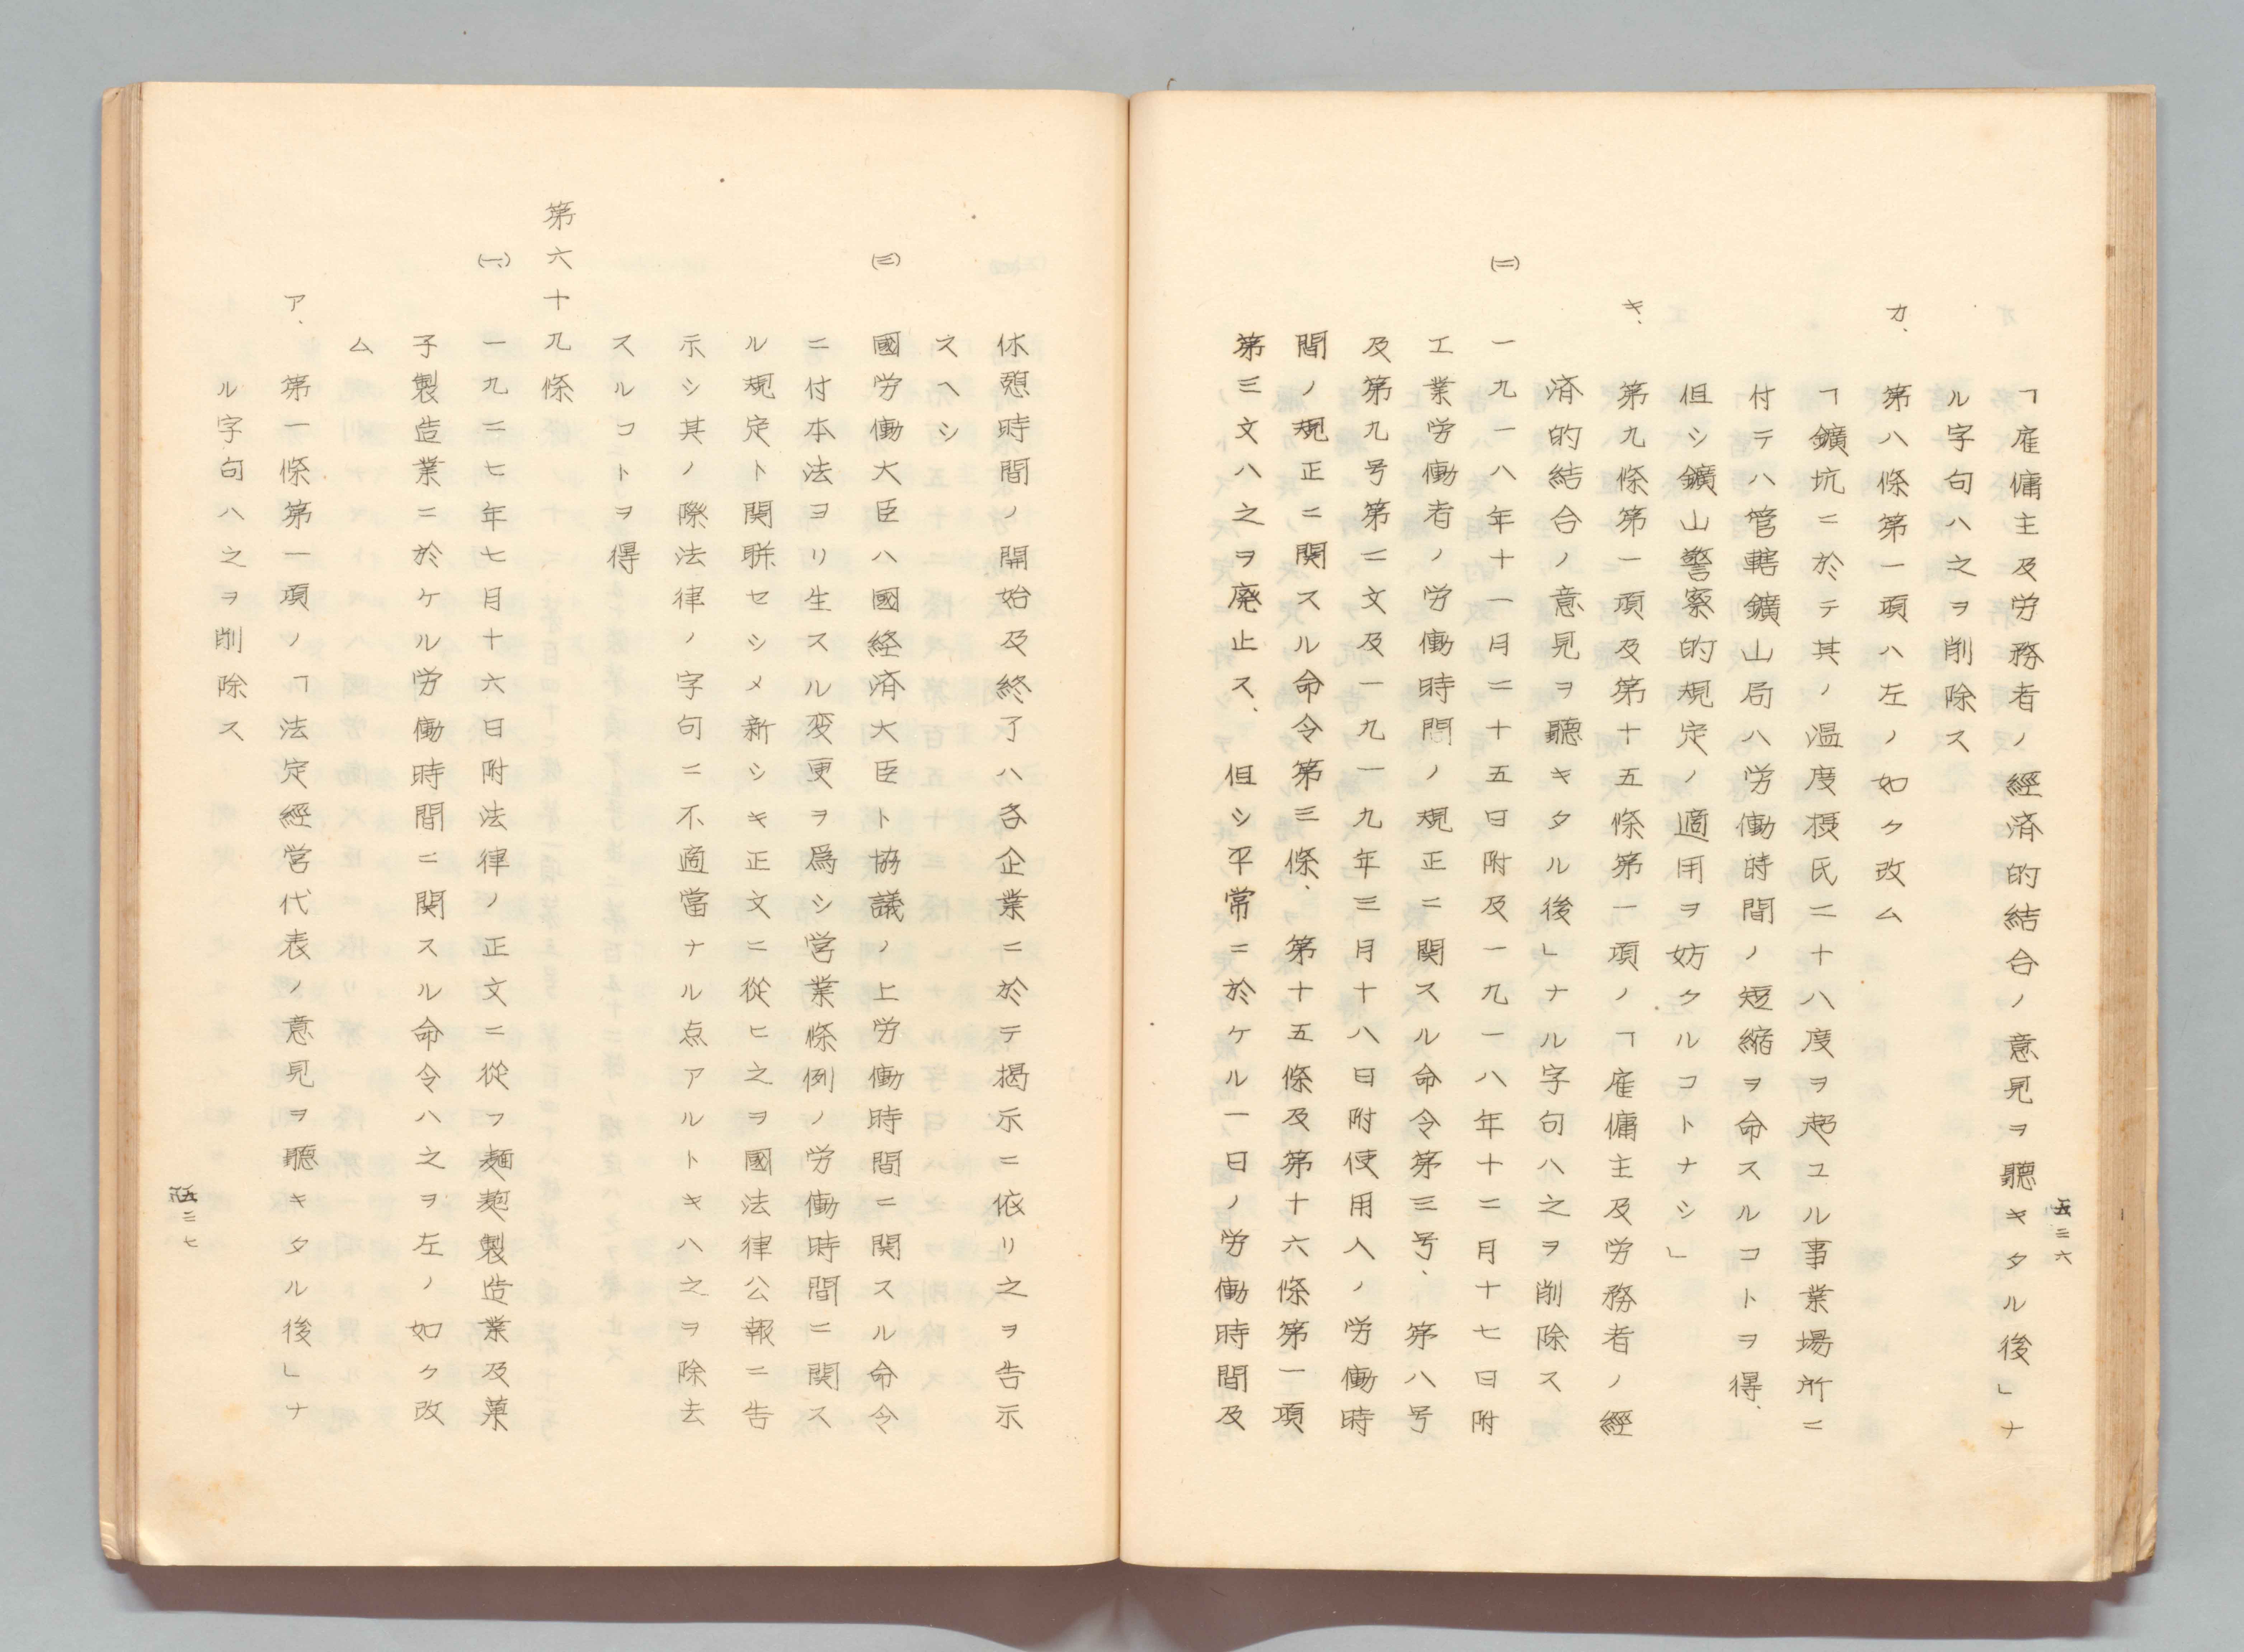 「雇傭主及労務者ノ經済的結合ノ意見ヲ聽キタル後」ナ
ル字句ハ之ヲ削除ス
カ、第八條第一項ハ左ノ如ク改ム
「鑛坑ニ於テ其ノ温度摂氏二十八度ヲ超ユル事業場所ニ
付テハ管轄鑛山局ハ労働時間ノ短縮ヲ命スルコトヲ得、
但シ鑛山警察的規定ノ適用ヲ妨クルコトナシ」
キ、第九條第一項及第十五條第一項ノ「雇傭主及労務者ノ經
済的結合ノ意見ヲ聽キタル後」ナル字句ハ之ヲ削除ス
(二)一九一八年十一月二十五日附及一九一八年十二月十七日附
工業労働者ノ労働時間ノ規正ニ関スル命令第三号、第八号
及第九号第二文及一九一九年三月十八日附使用人ノ労働時
間ノ規正ニ関スル命令第三條、第十五條及第十六條第一項
第三文ハ之ヲ廃止ス、但シ平常ニ於ケル一日ノ労働時間及
五二六
休憩時間ノ開始及終了ハ各企業ニ於テ掲示ニ依リ之ヲ告示
スヘシ
(三)國労働大臣ハ國経済大臣ト協議ノ上労働時間ニ関スル命令
ニ付本法ヨリ生スル変更ヲ爲シ営業條例ノ労働時間ニ関ス
ル規定ト関聯セシメ新シキ正文ニ從ヒ之ヲ國法律公報ニ告
示シ其ノ際法律ノ字句ニ不適當ナル点アルトキハ之ヲ除去
スルコトヲ得
第六十九條
(一)一九二七年七月十六日附法律ノ正文ニ從フ麺麭製造業及菓
子製造業ニ於ケル労働時間ニ関スル命令ハ之ヲ左ノ如ク改
ム
ア、第一條第一項ノ「法定經営代表ノ意見ヲ聽キタル後」ナ
ル字句ハ之ヲ削除ス
五二七